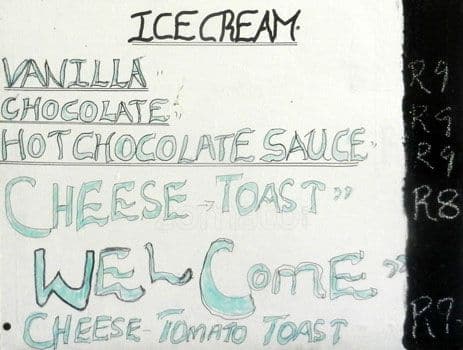 ICE CREAM.
VANILLA " R9
CHOCOLATE " R9
HOT CHOCOLATE SAUCE " R9
CHEESE → TOAST " R8
WELCOME "
CHEESE - TOMATO TOAST R9-